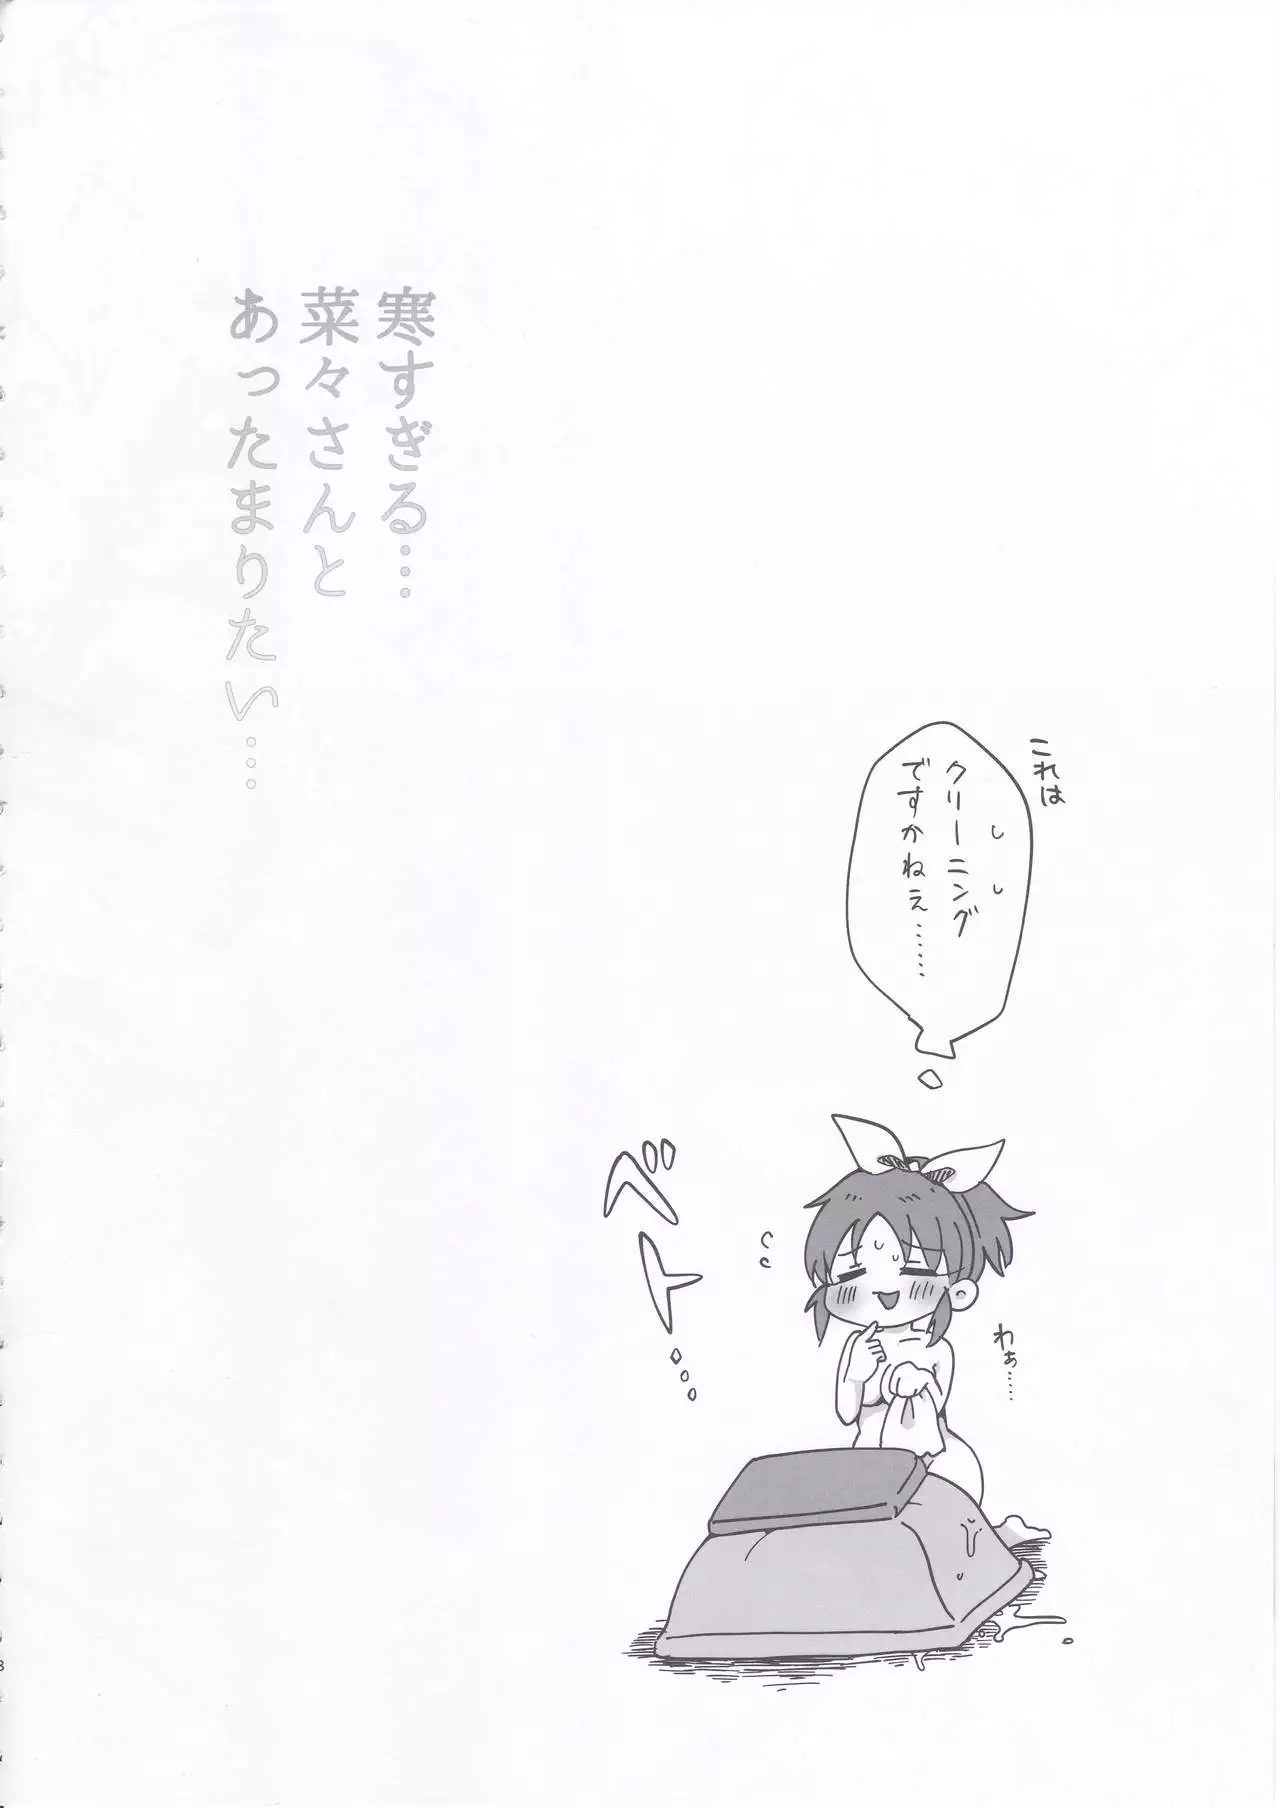 これは
クリーニング
ですかねぇ……
わぁ……
ベト…
寒すぎる…
菜々さんと
あったまりたい…